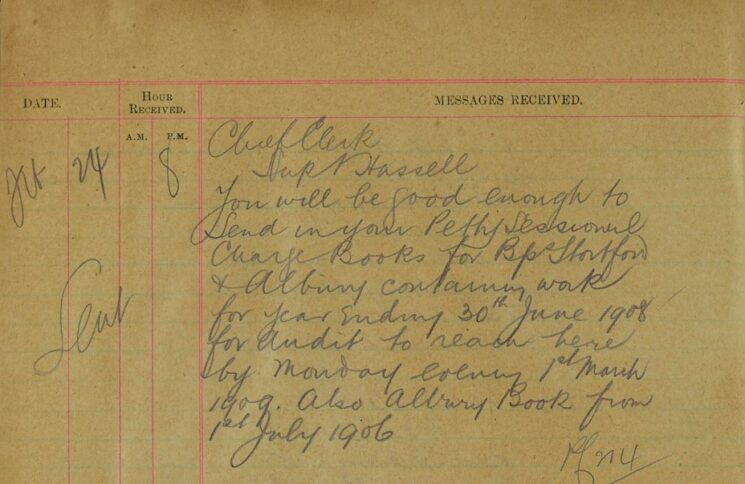 DATE.
HOUR RECEIVED.
MESSAGES RECEIVED.
A.M. P.M.
Feb 24 8
Chief Clerk
Supt Hassell
You will be good enough to
Send in your Petty Sessional
Charge Books for Bps Stortford
& Albury containing work
for year Ending 30th June 1908
for Audit to reach here
by Monday evening 1st March
1909. Also Albury Book from
1st July 1906
Sent